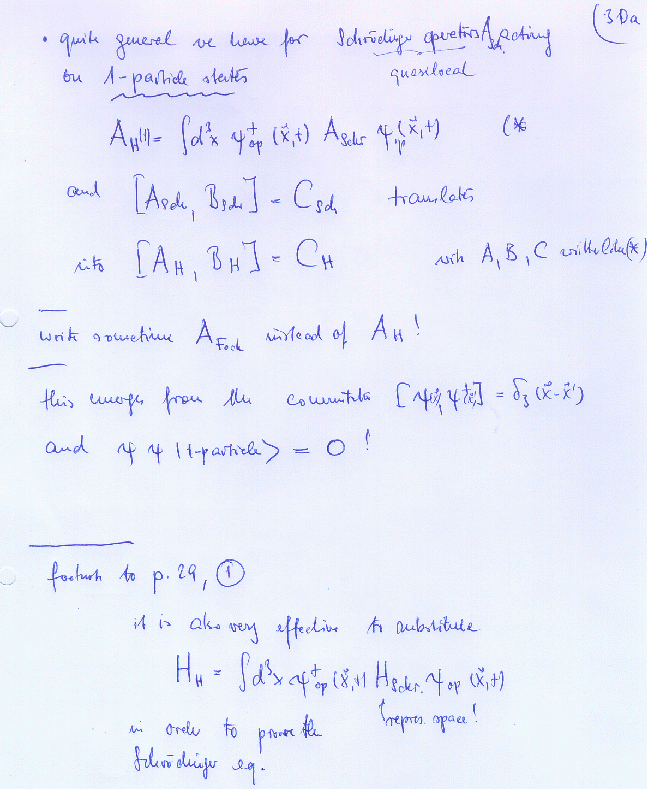 (30a
• quite general we have for Schrödinger operators A_Sch. acting
quasilocal
on 1-particle states
A_H(t) = ∫d³x ψ⁺_op (x⃗,t) A_Schr ψ_op(x⃗,t) (*
and [A_Sch, B_Sch] = C_Sch translates
into [A_H, B_H] = C_H with A, B, C (*)
write sometime A_Fock instead of A_H !
this emerges from the commutator [ψ(x⃗), ψ⁺(x⃗')] = δ₃(x⃗-x⃗')
and ψ ψ |1-particle> = 0 !
footnote to p. 29, ①
it is also very effective to substitute
H_H = ∫d³x ψ⁺_op (x⃗,t) H_Schr. ψ_op (x⃗,t)
↑ repres. space!
in order to prove the
Schrödinger eq.